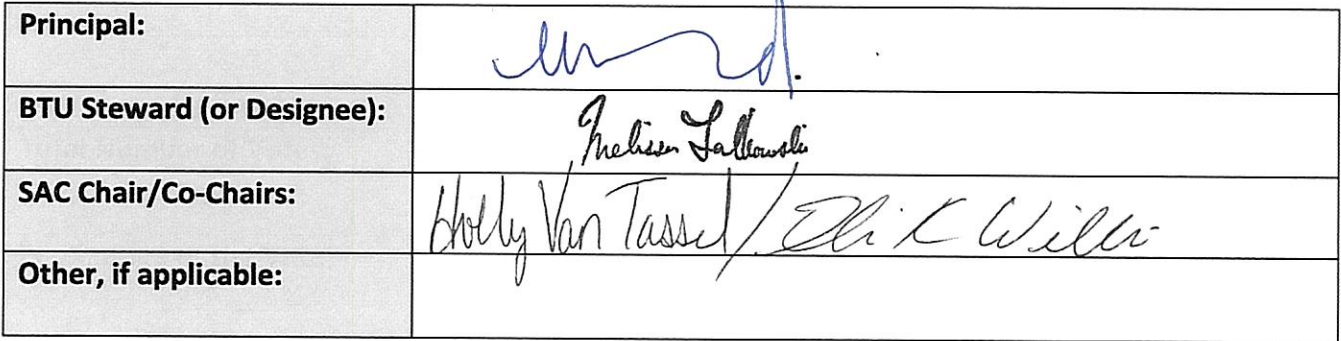 Principal:
BTU Steward (or Designee):
Melissa Falkowski
SAC Chair/Co-Chairs:
Holly Van Tassel /
Other, if applicable: